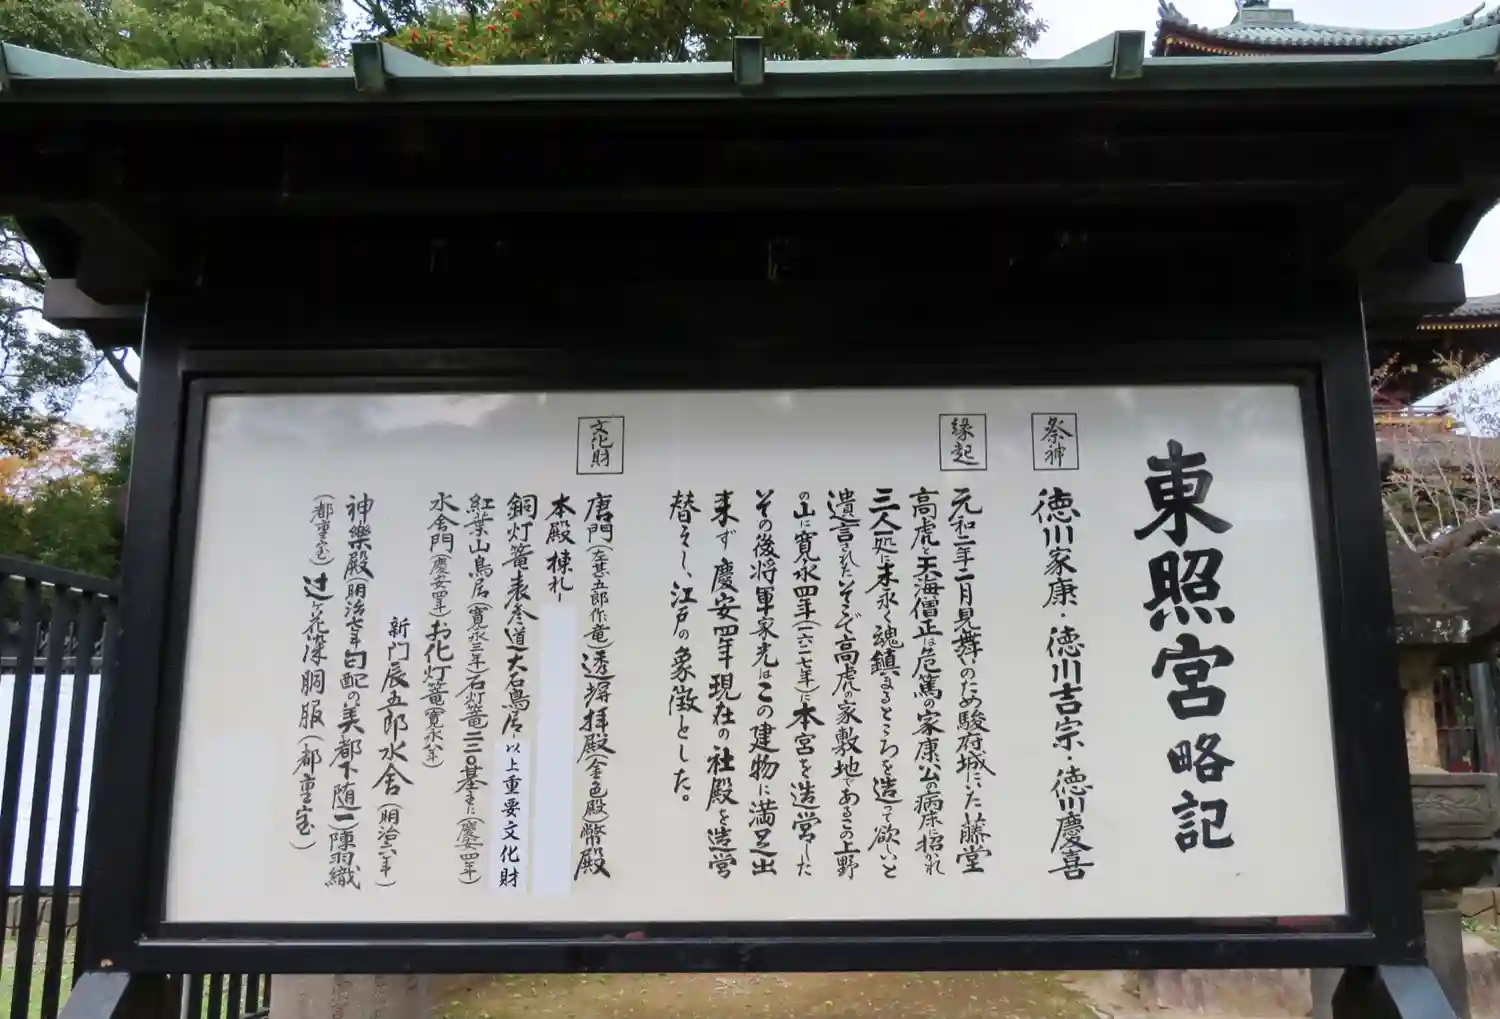 東照宮略記
祭神
徳川家康・徳川吉宗・徳川慶喜
縁起
元和二年二月見舞いのため駿府城にいた藤堂
高虎と天海僧正は危篤の家康公の病床に招かれ
三人一処に末永く魂鎮まるところを造って欲しいと
遺言されたそこで高虎の家敷地であるこの上野
の山に寛永四年(一六二七年)に本宮を造営した
その後将軍家光はこの建物に満足出
来ず慶安四年現在の社殿を造営
替えし、江戸の象徴とした。
文化財
唐門(左甚五郎作竜)透塀拝殿(金色殿)幣殿
本殿棟札
銅灯篭表参道大石鳥居以上重要文化財
紅葉山鳥居(寛永三年)石灯篭二二〇基主に(慶安四年)
水舎門(慶安四年)お化灯篭(寛永八年)
新門辰五郎水舎(明治六年)
神樂殿(明治七年)勾配の美都下随一)陣羽織
(都重宝)辻ヶ花染胴服(都重宝)